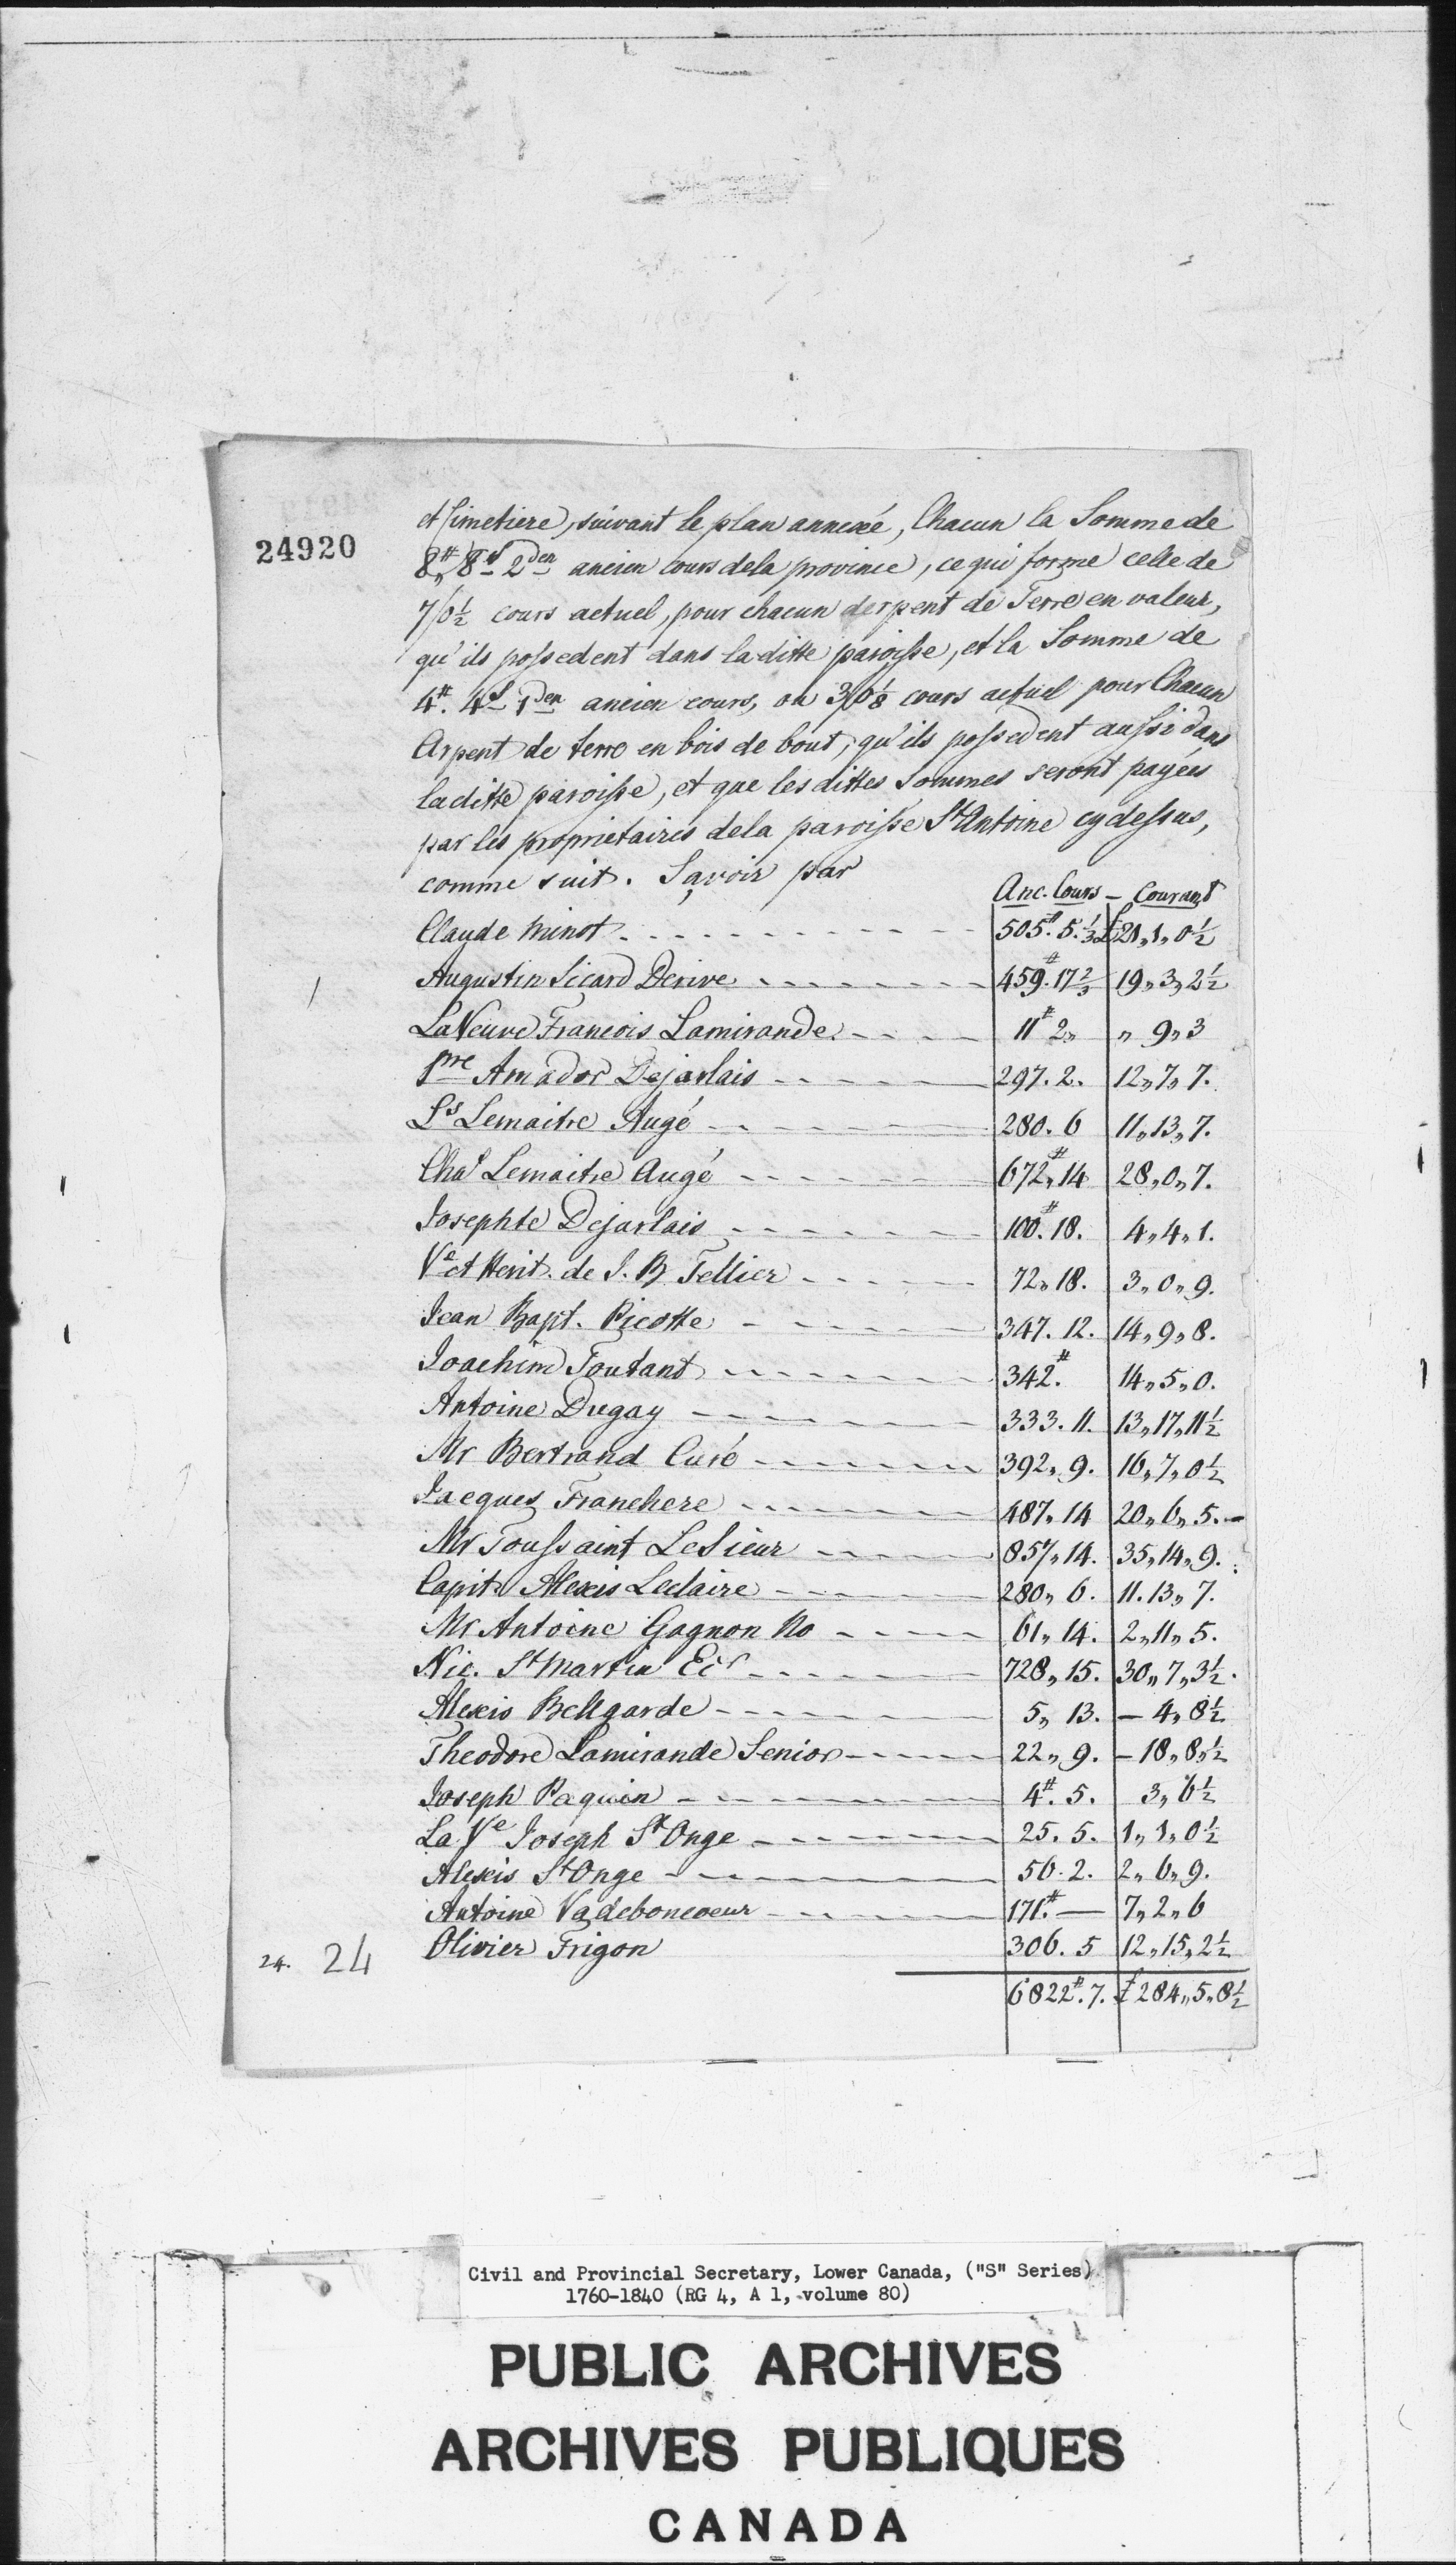 24920
et Cimetiere, suivant le plan annexé, Chacun la Somme de
8#„ 8s 2den ancien cours dela province, ce qui forme celle de
7/0½ cours actuel, pour chacun derpent de Terre en valeur,
qu'ils possedent dans laditte paroisse, et la Somme de
4#. 4s 1den ancien cours, ou 3/0⅛ cours actuel pour Chacun
Arpent de terre en bois de bout, qu'ils possedent aussi dans
laditte paroisse, et que les dittes Sommes seront payées
par les proprietaires dela paroisse St Antoine cydessus,
comme suit. Sçavoir par
Anc. Cours – Courant
Claude Minot 505#. 5.⅓ £21„1„0½
Augustin Sicard Derive 459#.17⅔ 19„3„2½
La Veuve Francois Lamirande 11# 2„ „ 9„3
Pre Amador Dejarlais 297. 2. 12„7„7.
Ls Lemaitre Augé 280. 6 11„13„7.
Chas Lemaitre Augé 672#„14 28„0„7.
Josephte Dejarlais 100#. 18. 4„4„1.
Ve et Herit. de J. B Tellier 72„18. 3„0„9.
Jean Bapt. Picotte 347. 12. 14„9„8.
Joachim Toutant 342#. 14„5„0.
Antoine Dugay 333. 11. 13„17„11½
Mr Bertrand Curé 392„9. 16„7„0½
Jacques Franchere 487„14 20„6„5.–
Mr Toussaint LeSieur 857„14. 35„14„9.
Capit. Alexis Leclaire 280„6. 11.13„7.
Mr Antoine Gagnon No 61„14. 2„11„5.
Nic. St Martin Ecr 728„15. 30„7„3½.
Alexis Bellgarde 5„13. – 4„8½
Theodore Lamirande Senior 22„9. – 18„8½
Joseph Paquin 4#. 5. 3„6½
La Ve Joseph St Onge 25. 5. 1„1„0½
Alexis St Onge 56. 2. 2„6„9.
Antoine Vadeboncoeur 171#.— 7„2„6
24. 24 Olivier Frigon 306. 5 12„15„2½
6822#.7. £284„5„8½
Civil and Provincial Secretary, Lower Canada, ("S" Series)
1760-1840 (RG 4, A 1, volume 80)
PUBLIC ARCHIVES
ARCHIVES PUBLIQUES
CANADA